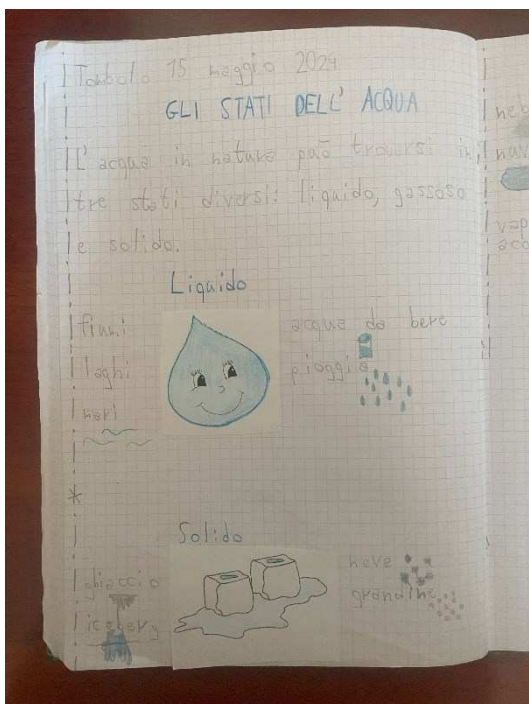 Tombolo 15 maggio 2024
GLI STATI DELL' ACQUA
L'acqua in natura può trovarsi in
tre stati diversi: liquido, gassoso
e solido.
Liquido
fiumi
laghi
mari
acqua da bere
pioggia
*
Solido
ghiaccio
iceberg
neve
grandine